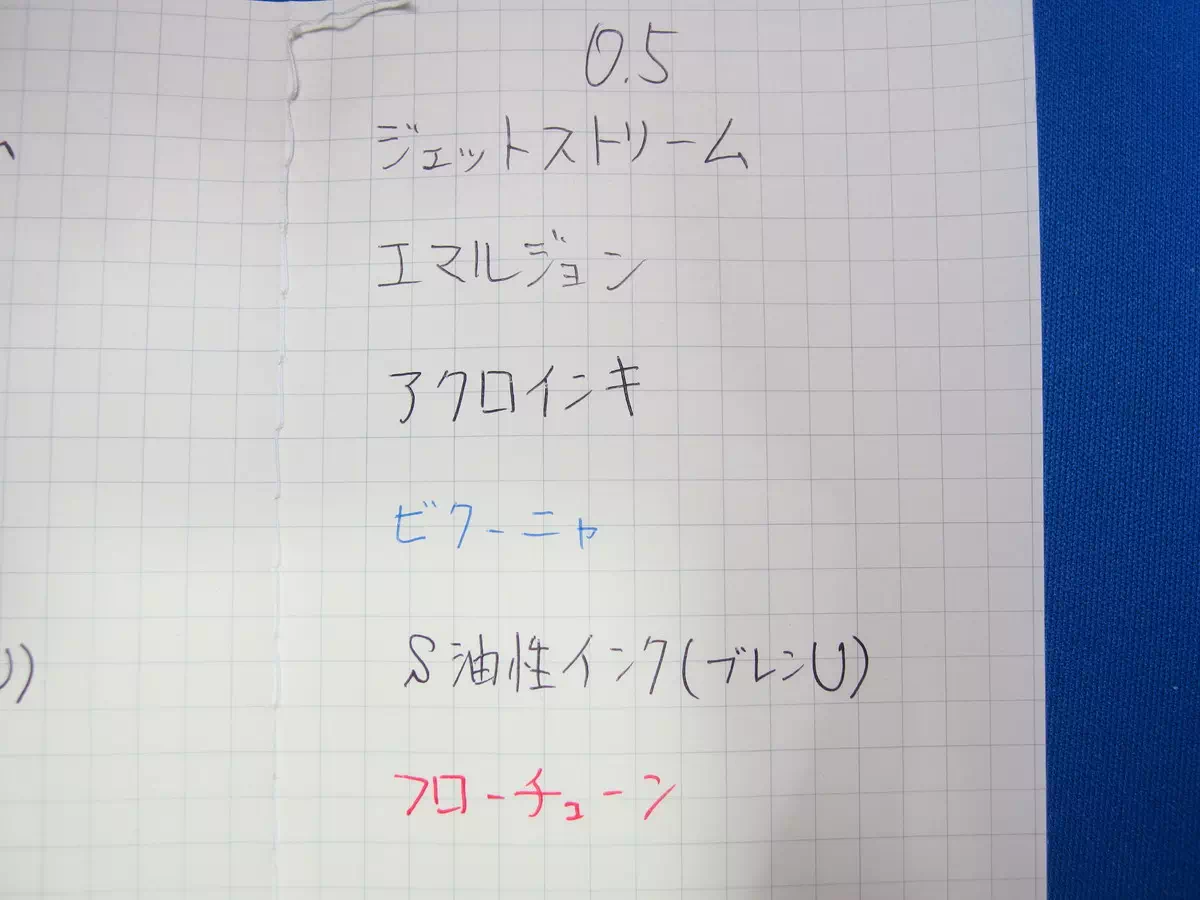 0.5
ジェットストリーム
エマルジョン
アクロインキ
ビクーニャ
S油性インク(ブレンU)
フローチューン